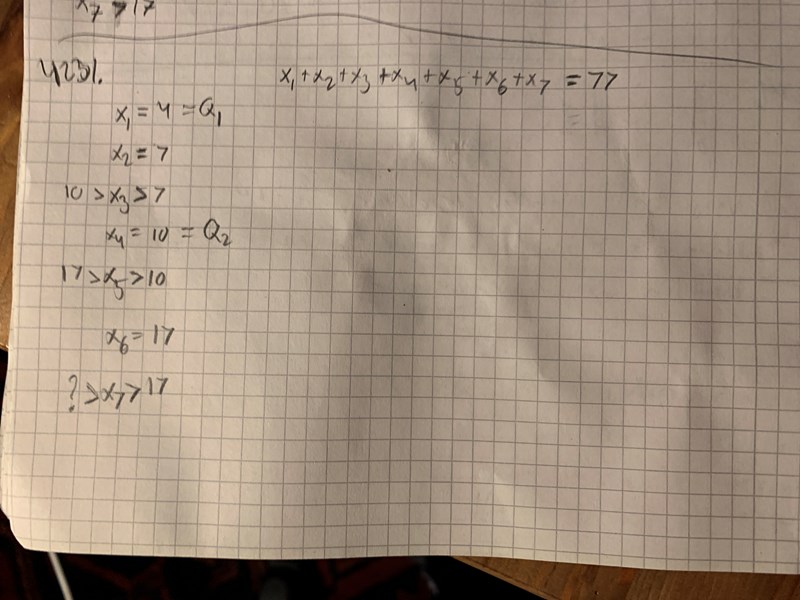 x₇ > 17
4231.
x₁+x₂+x₃+x₄+x₅+x₆+x₇ = 77
x₁ = 4 = Q₁
x₂ = 7
10 > x₃ > 7
x₄ = 10 = Q₂
17 > x₅ > 10
x₆ = 17
? > x₇ > 17